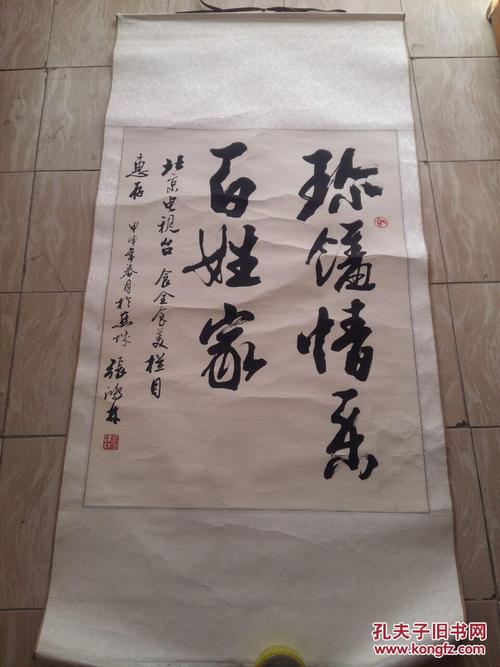 珍馐情系
百姓家
北京电视台 食全食美栏目
惠存
甲申年春月於燕京 张鸿林
孔夫子旧书网
www.kongfz.com